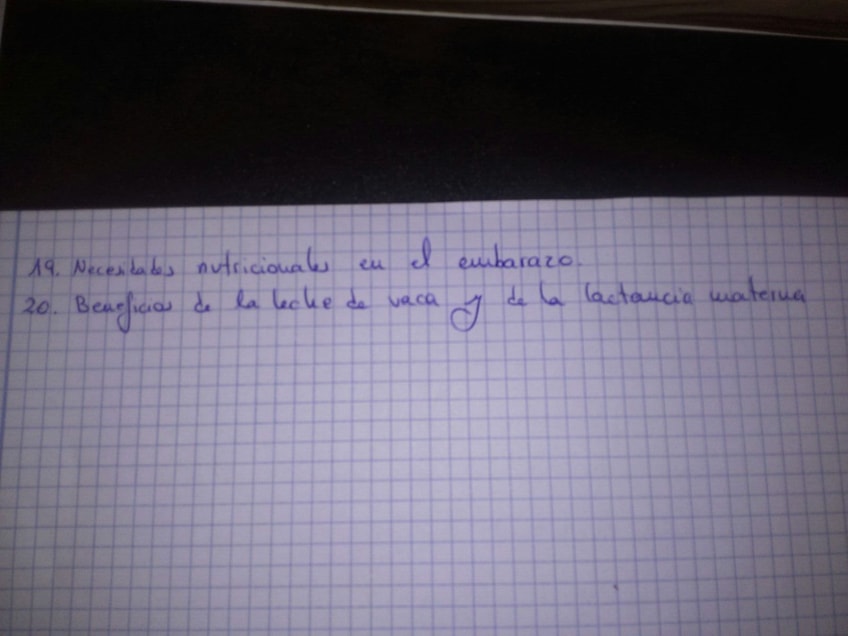 19. Necesidades nutricionales en el embarazo.
20. Beneficios de la leche de vaca y de la lactancia materna